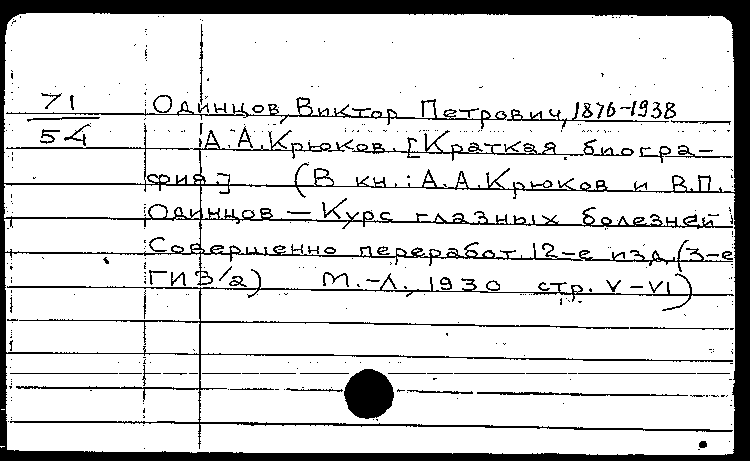 71
54
Одинцов, Виктор Петрович, 1876-1938
А.А.Крюков. [Краткая биогра-
фия.] (В кн.: А.А.Крюков и В.П.
Одинцов — Курс глазных болезней
Совершенно переработ. 12-е изд. (3-е
ГИЗ/а) М.-Л., 1930 стр. V-VI)